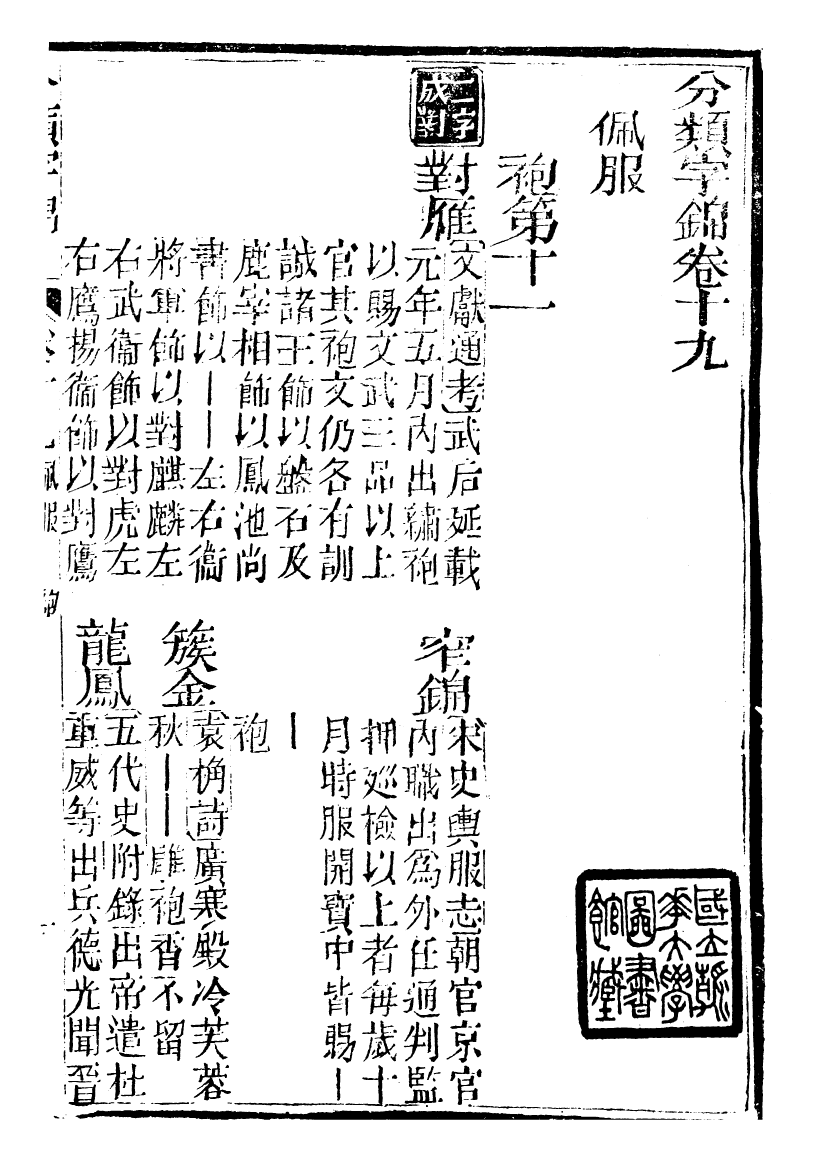 分類字錦卷十九
佩服
袍第十一
二字
成對
對雁
文獻通考武后延載
元年五月內出繡袍
以賜文武三品以上
官其袍文仍各有訓
誡諸王飾以盤石及
鹿宰相飾以鳳池尚
書飾以丨丨左右衞
將軍飾以對麒麟左
右武衞飾以對虎左
右鷹揚衞飾以對鷹
窄錦
宋史輿服志朝官京官
內職出爲外任通判監
押廵檢以上者每歲十
月時服開寶中皆賜丨
丨
袍
簇金
袁桷詩廣寒殿冷芙蓉
秋丨丨雕袍香不留
龍鳳
五代史附錄出帝遣杜
重威等出兵德光聞晉
國立清
華大學
圖書
館藏